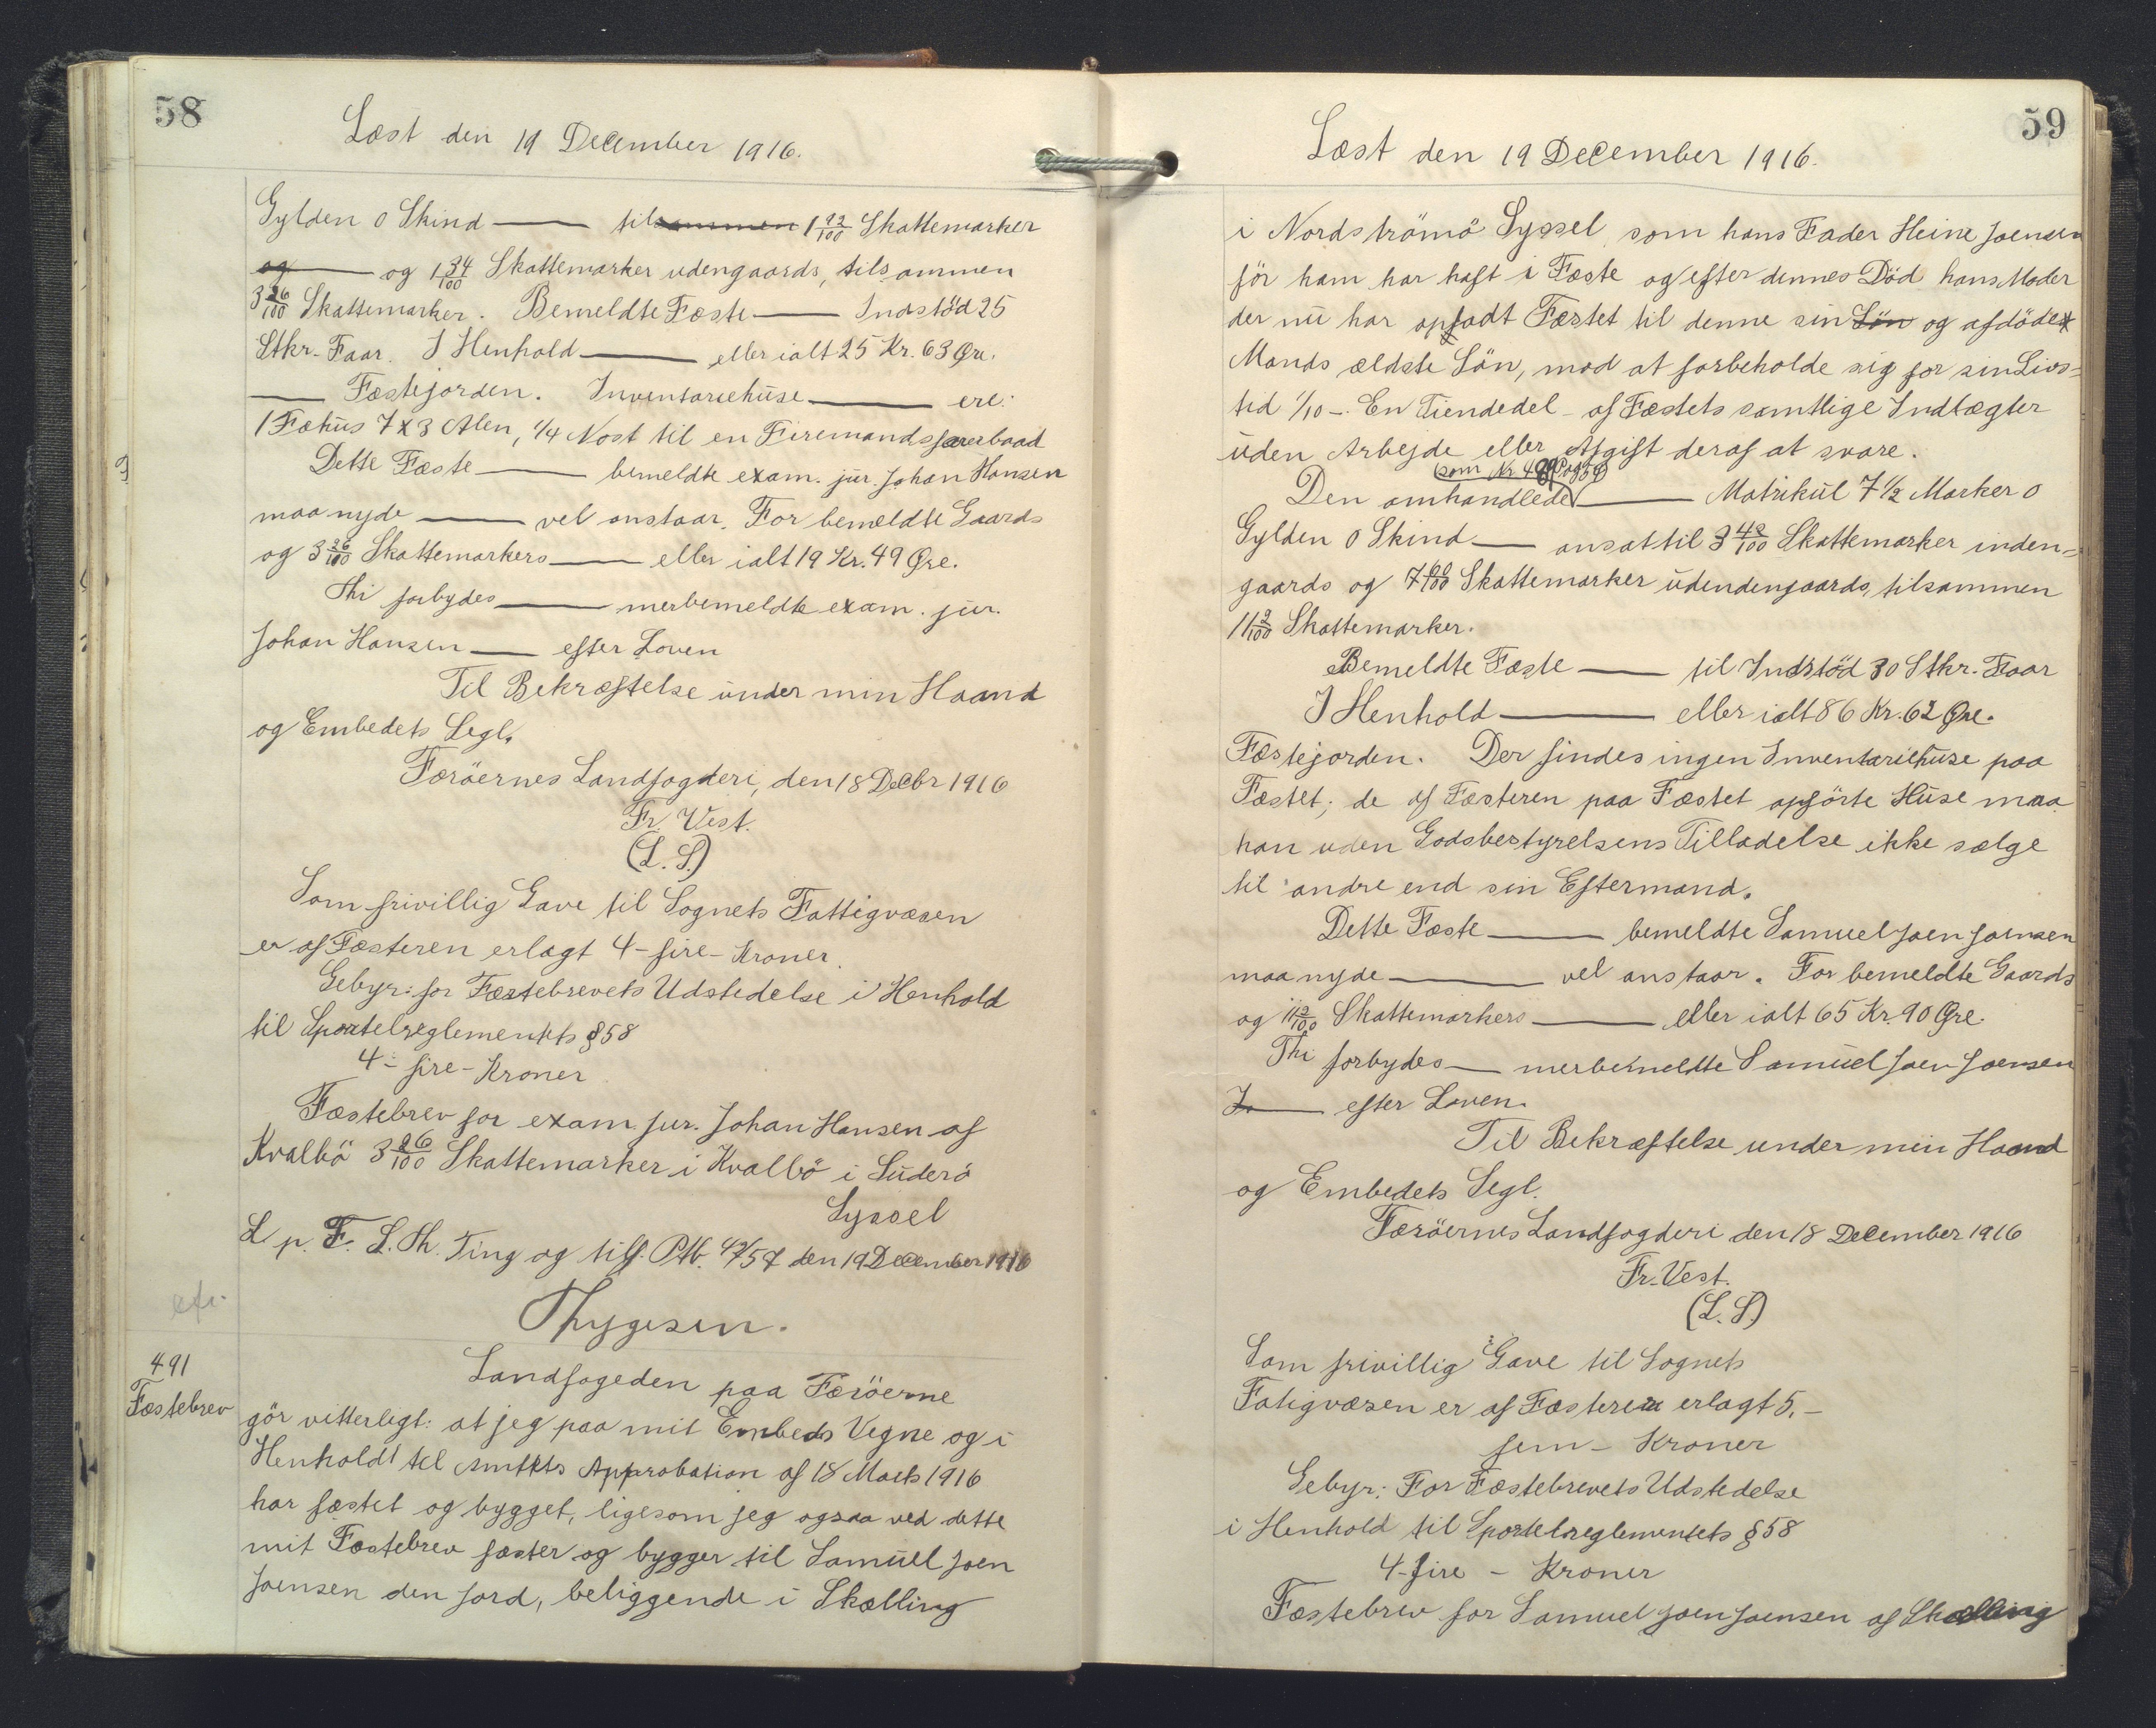 58
Læst den 19 December 1916.
Gylden 0 Skind — tilsammen 1 92/100 Skattemarker
og — og 1 34/100 Skattemarker udengaards, tilsammen
3 26/100 Skattemarker. Bemeldte Fæste — Indstöd 25
Stkr. Faar. I Henhold — eller ialt 25 Kr. 63 Øre.
— Fæstejorden. Inventariehuse — ere:
1 Fæhus 7 x 3 Alen, 1/4 Nost til en Firemandsfarerbaad
Dette Fæste — bemeldte exam. jur. Johan Hansen
maa nyde — vel anstaar. For bemeldte Gaards
og 3 26/100 Skattemarkers — eller ialt 19 Kr. 49 Øre.
Thi forbydes — merbemeldte exam. jur.
Johan Hansen — efter Loven
Til Bekræftelse under min Haand
og Embedets Segl.
Færöernes Landfogderi, den 18 Decbr 1916
Fr. Vest.
(L. S.)
Som frivillig Gave til Sognets Fattigvæsen
er af Fæsteren erlagt 4 - fire - Kroner.
Gebyr: for Fæstebrevets Udstedelse i Henhold
til Sportelreglementets § 58
4 - fire - Kroner
Fæstebrev for exam. jur. Johan Hansen af
Kvalbö 3 26/100 Skattemarker i Kvalbö i Suderö
Syssel
L p. F. S. Th. Ting og tilf. Ptb. 4/57 den 19 December 1916
Thygesen.
efr.
491
Fæstebrev
Landfogeden paa Færöerne
gör vitterligt: at jeg paa mit Embeds Vegne og i
Henhold til Amtets Approbation af 18 Marts 1916
har fæstet og bygget, ligesom jeg ogsaa ved dette
mit Fæstebrev fæster og bygger til Samuel Joen
Joensen den Jord, beliggende i Skælling
59
Læst den 19 December 1916.
i Nordströmö Syssel, som hans Fader Heine Joensen
för ham har haft i Fæste og efter dennes Död hans Moder
der nu har opladt Fæstet til denne sin Sön og afdöde
Mands ældste Sön, mod at forbeholde sig for sin Livs=
tid 1/10 -. En Tiendedel - af Fæstets samtlige Indtægter
uden Arbejde eller Afgift deraf at svare.
(som Nr 489 Pag 57)
Den omhandlede — Matrikul 7 1/2 Marker 0
Gylden 0 Skind — ansat til 3 42/100 Skattemarker inden=
gaards og 7 60/100 Skattemarker udendengaards, tilsammen
11 2/100 Skattemarker.
Bemeldte Fæste — til Indstöd 30 Stkr. Faar
I Henhold — eller ialt 86 Kr. 62 Øre.
Fæstejorden. Der findes ingen Inventariehuse paa
Fæstet; de af Fæsteren paa Fæstet opförte Huse maa
han uden Godsbestyrelsens Tilladelse ikke sælge
til andre end sin Eftermand.
Dette Fæste — bemeldte Samuel Joen Joensen
maa nyde — vel anstaar. For bemeldte Gaards
og 11 2/100 Skattemarkers — eller ialt 65 Kr. 90 Øre.
Thi forbydes — merbemeldte Samuel Joen Joensen
Jo — efter Loven.
Til Bekræftelse under min Haand
og Embedets Segl.
Færöernes Landfogderi den 18 December 1916
Fr. Vest.
(L. S)
Som frivillig Gave til Sognets
Fatigvæsen er af Fæsteren erlagt 5. -
fem - Kroner
Gebyr: For Fæstebrevets Udstedelse
i Henhold til Sportelreglementets § 58
4 - fire - Kroner
Fæstebrev for Samuel Joen Joensen af Skælling